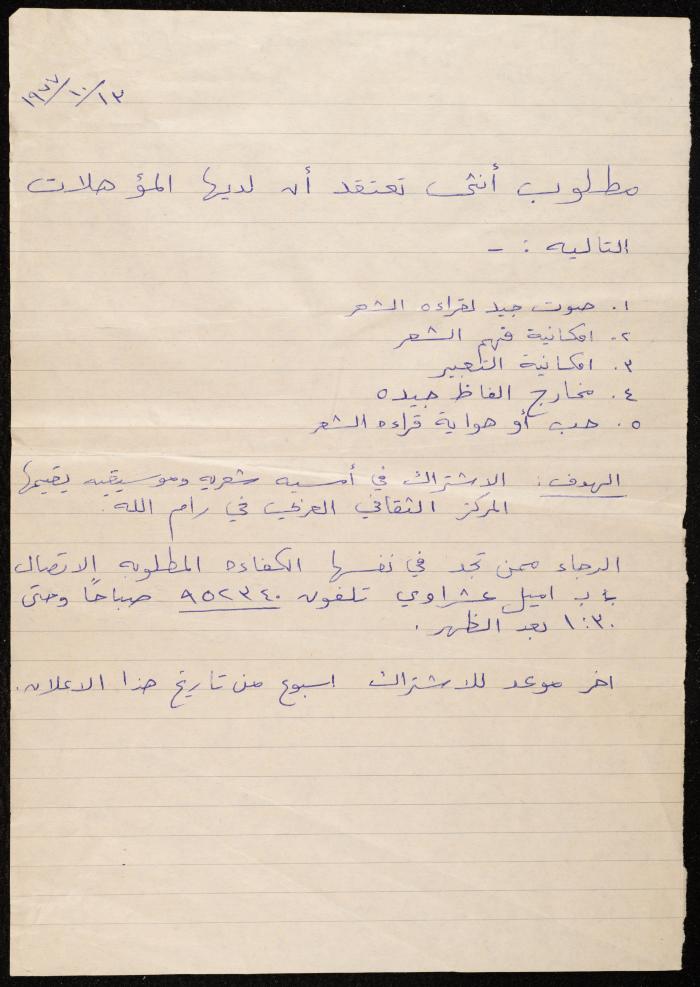 ١٩٧٧/١٠/١٣
مطلوب أنثى تعتقد أن لديها المؤهلات
التاليه : -
١. صوت جيد لقراءه الشعر
٢. امكانية فهم الشعر
٣. امكانية التعبير
٤. مخارج الفاظ جيده
٥. حب أو هواية قراءه الشعر
الهدف : الاشتراك في أمسيه شعريه وموسيقيه يقيمها
المركز الثقافي العربي في رام الله .
الرجاء ممن تجد في نفسها الكفاءه المطلوبه الاتصال
ب اميل عشراوي تلفون ٩٥٢٣٤٠ صباحاً وحتى
١:٣٠ بعد الظهر .
اخر موعد للاشتراك اسبوع من تاريخ هذا الاعلان .